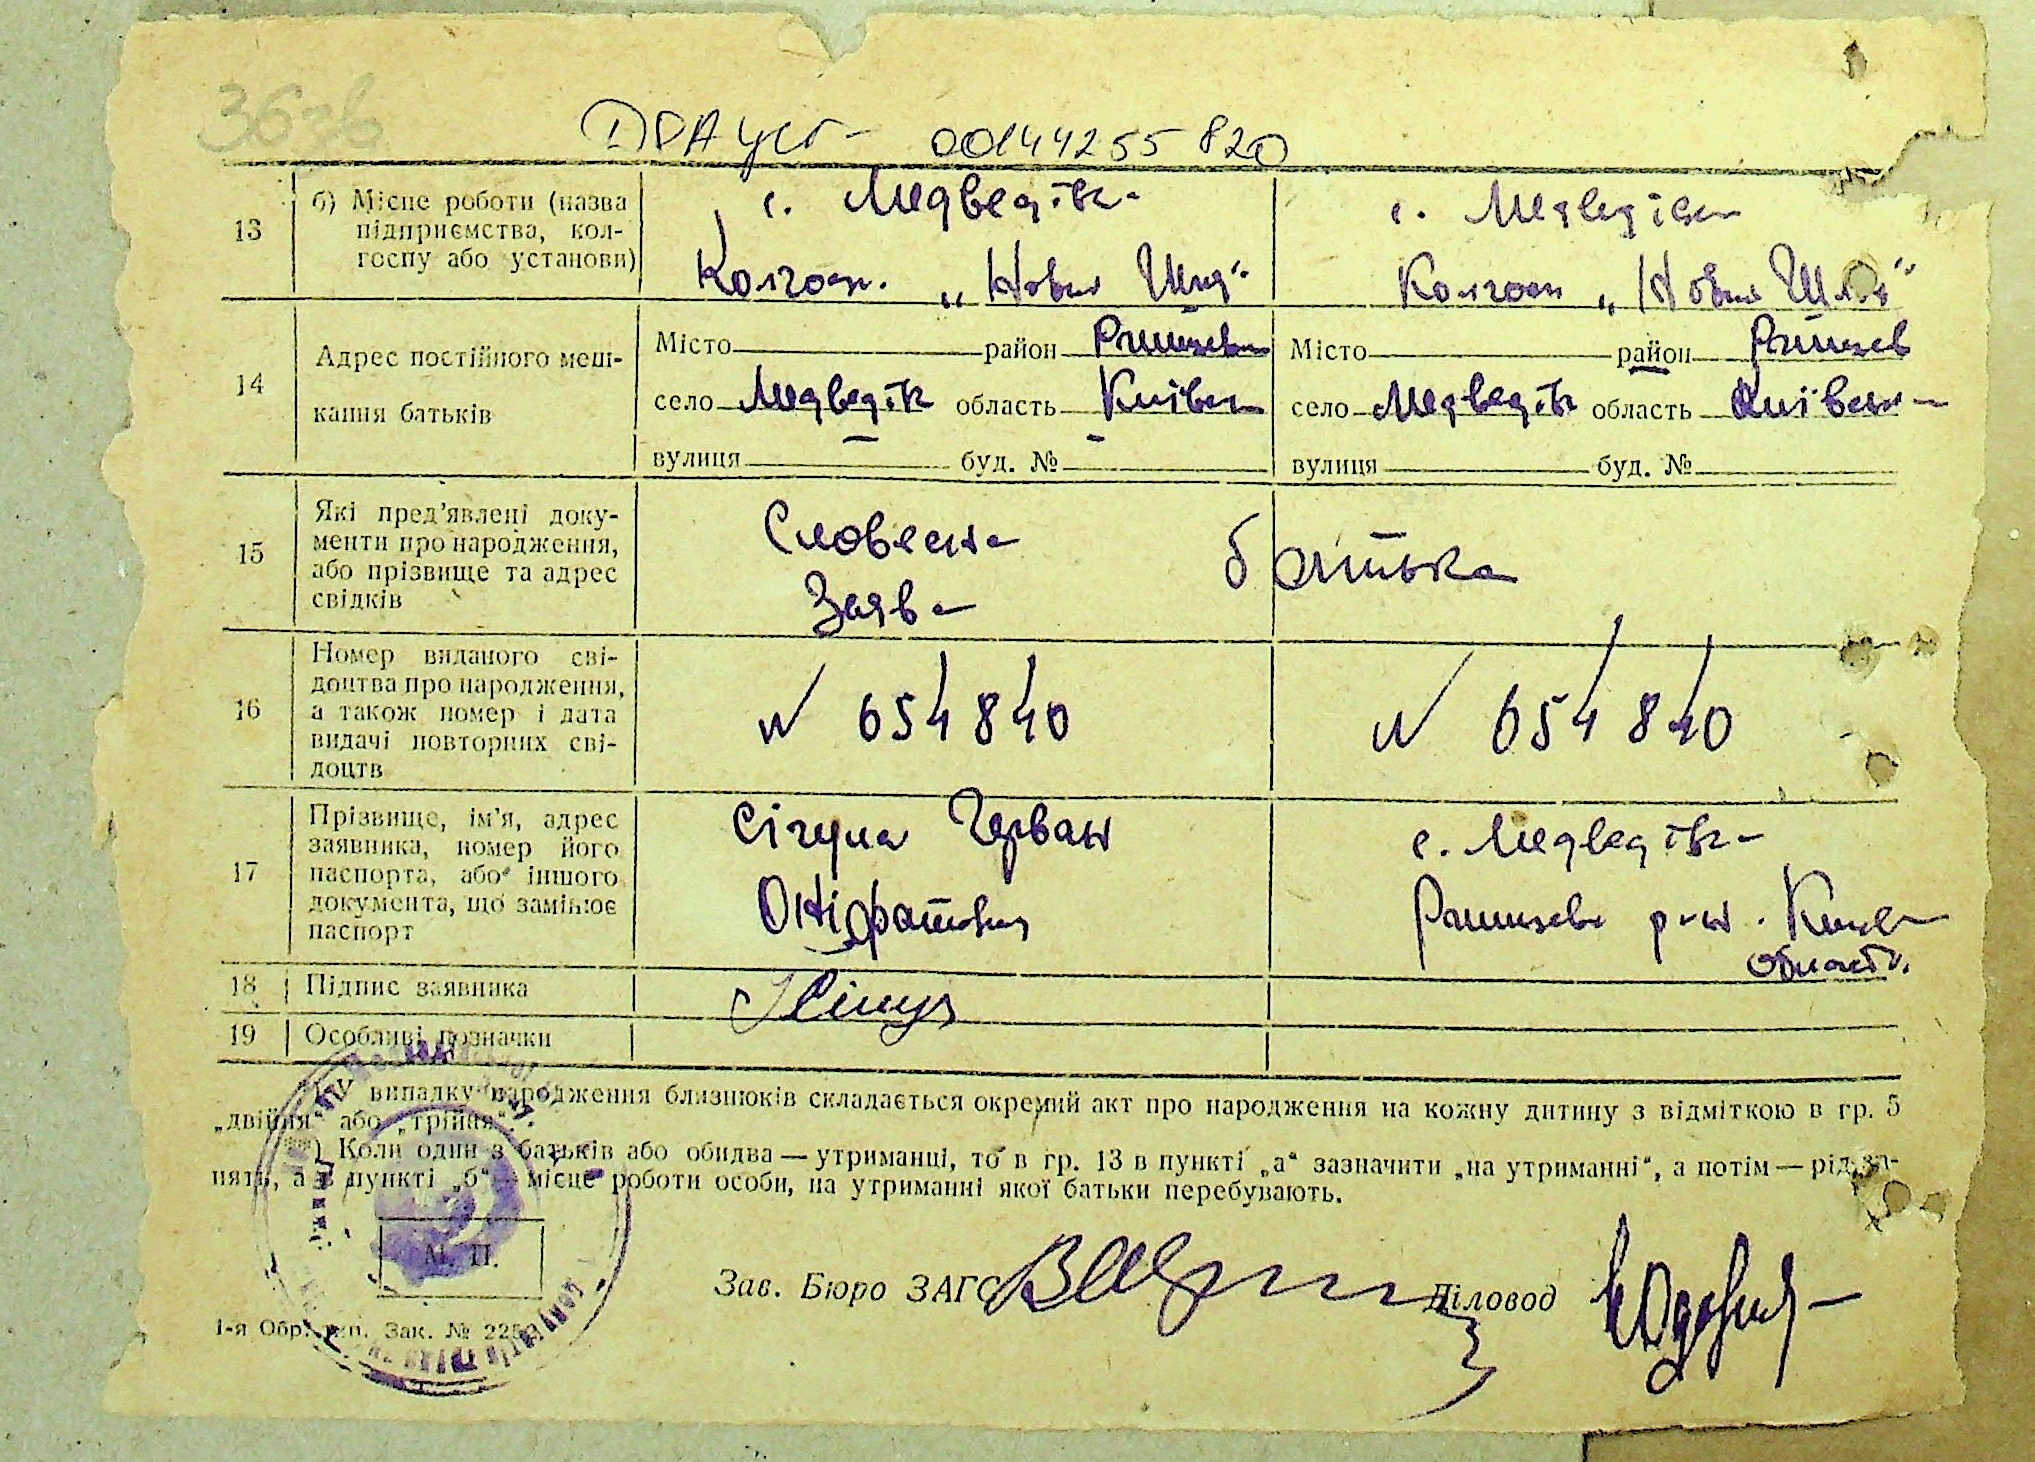 36зв
ДРА уст- 00144255820
13 б) Місце роботи (назва підприємства, колгоспу або установи)
с. Медведівка
Колгосп. „Новий Шлях“
с. Медведівка
Колгосп „Новий Шлях“
14 Адрес постійного мешкання батьків
Місто район Ржищев
село Медведівк область Київськ
вулиця буд. №
Місто район Ржищев
село Медведівк область Київськ
вулиця буд. №
15 Які пред’явлені документи про народження, або прізвище та адрес свідків
Словесна батька
Заява
16 Номер виданого свідоцтва про народження, а також номер і дата видачі повторних свідоцтв
№ 654840
№ 654840
17 Прізвище, ім’я, адрес заявника, номер його паспорта, або іншого документа, що замінює паспорт
с. Медведівка
Ржищевс р-н. Київ
област.
18 Підпис заявника
19 Особливі позначки
*) У випадку народження близнюків складається окремий акт про народження на кожну дитину з відміткою в гр. 5
„двійня“ або „трійня“.
**) Коли один з батьків або обидва — утриманці, то в гр. 13 в пункті „а“ зазначити „на утриманні“, а потім — рід за-
нять, а в пункті „б“ — місце роботи особи, на утриманні якої батьки перебувають.
М. П.
Зав. Бюро ЗАГС
Діловод
1-я Обр. тип. Зак. №